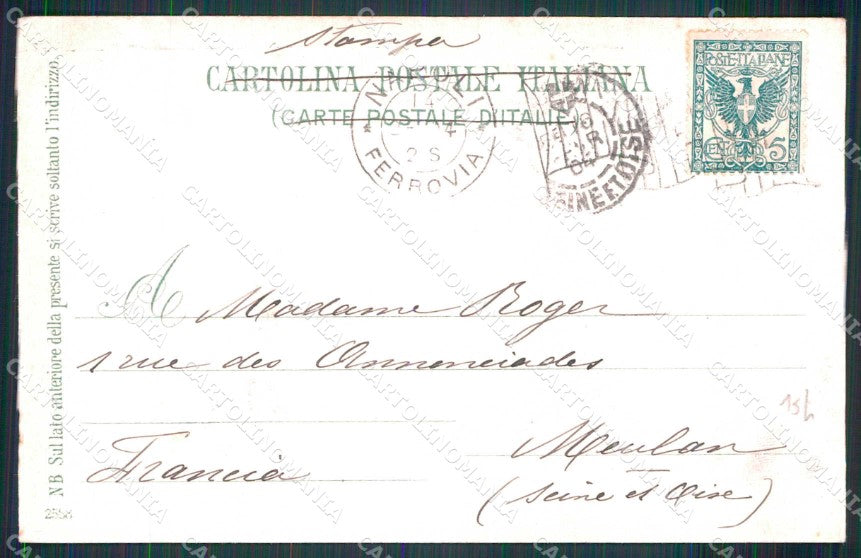 Stampa
CARTOLINA POSTALE ITALIANA
(CARTE POSTALE D'ITALIE)
NAPOLI
FERROVIA
SEINE ET OISE
POSTE ITALIANE
CENT. 5
NB Sul lato anteriore della presente si scrive soltanto l'indirizzo.
A Madame Roger
1 rue des Annonciades
Meulan
Francia
(Seine et Oise)
15/
CARTOLINOMANIA